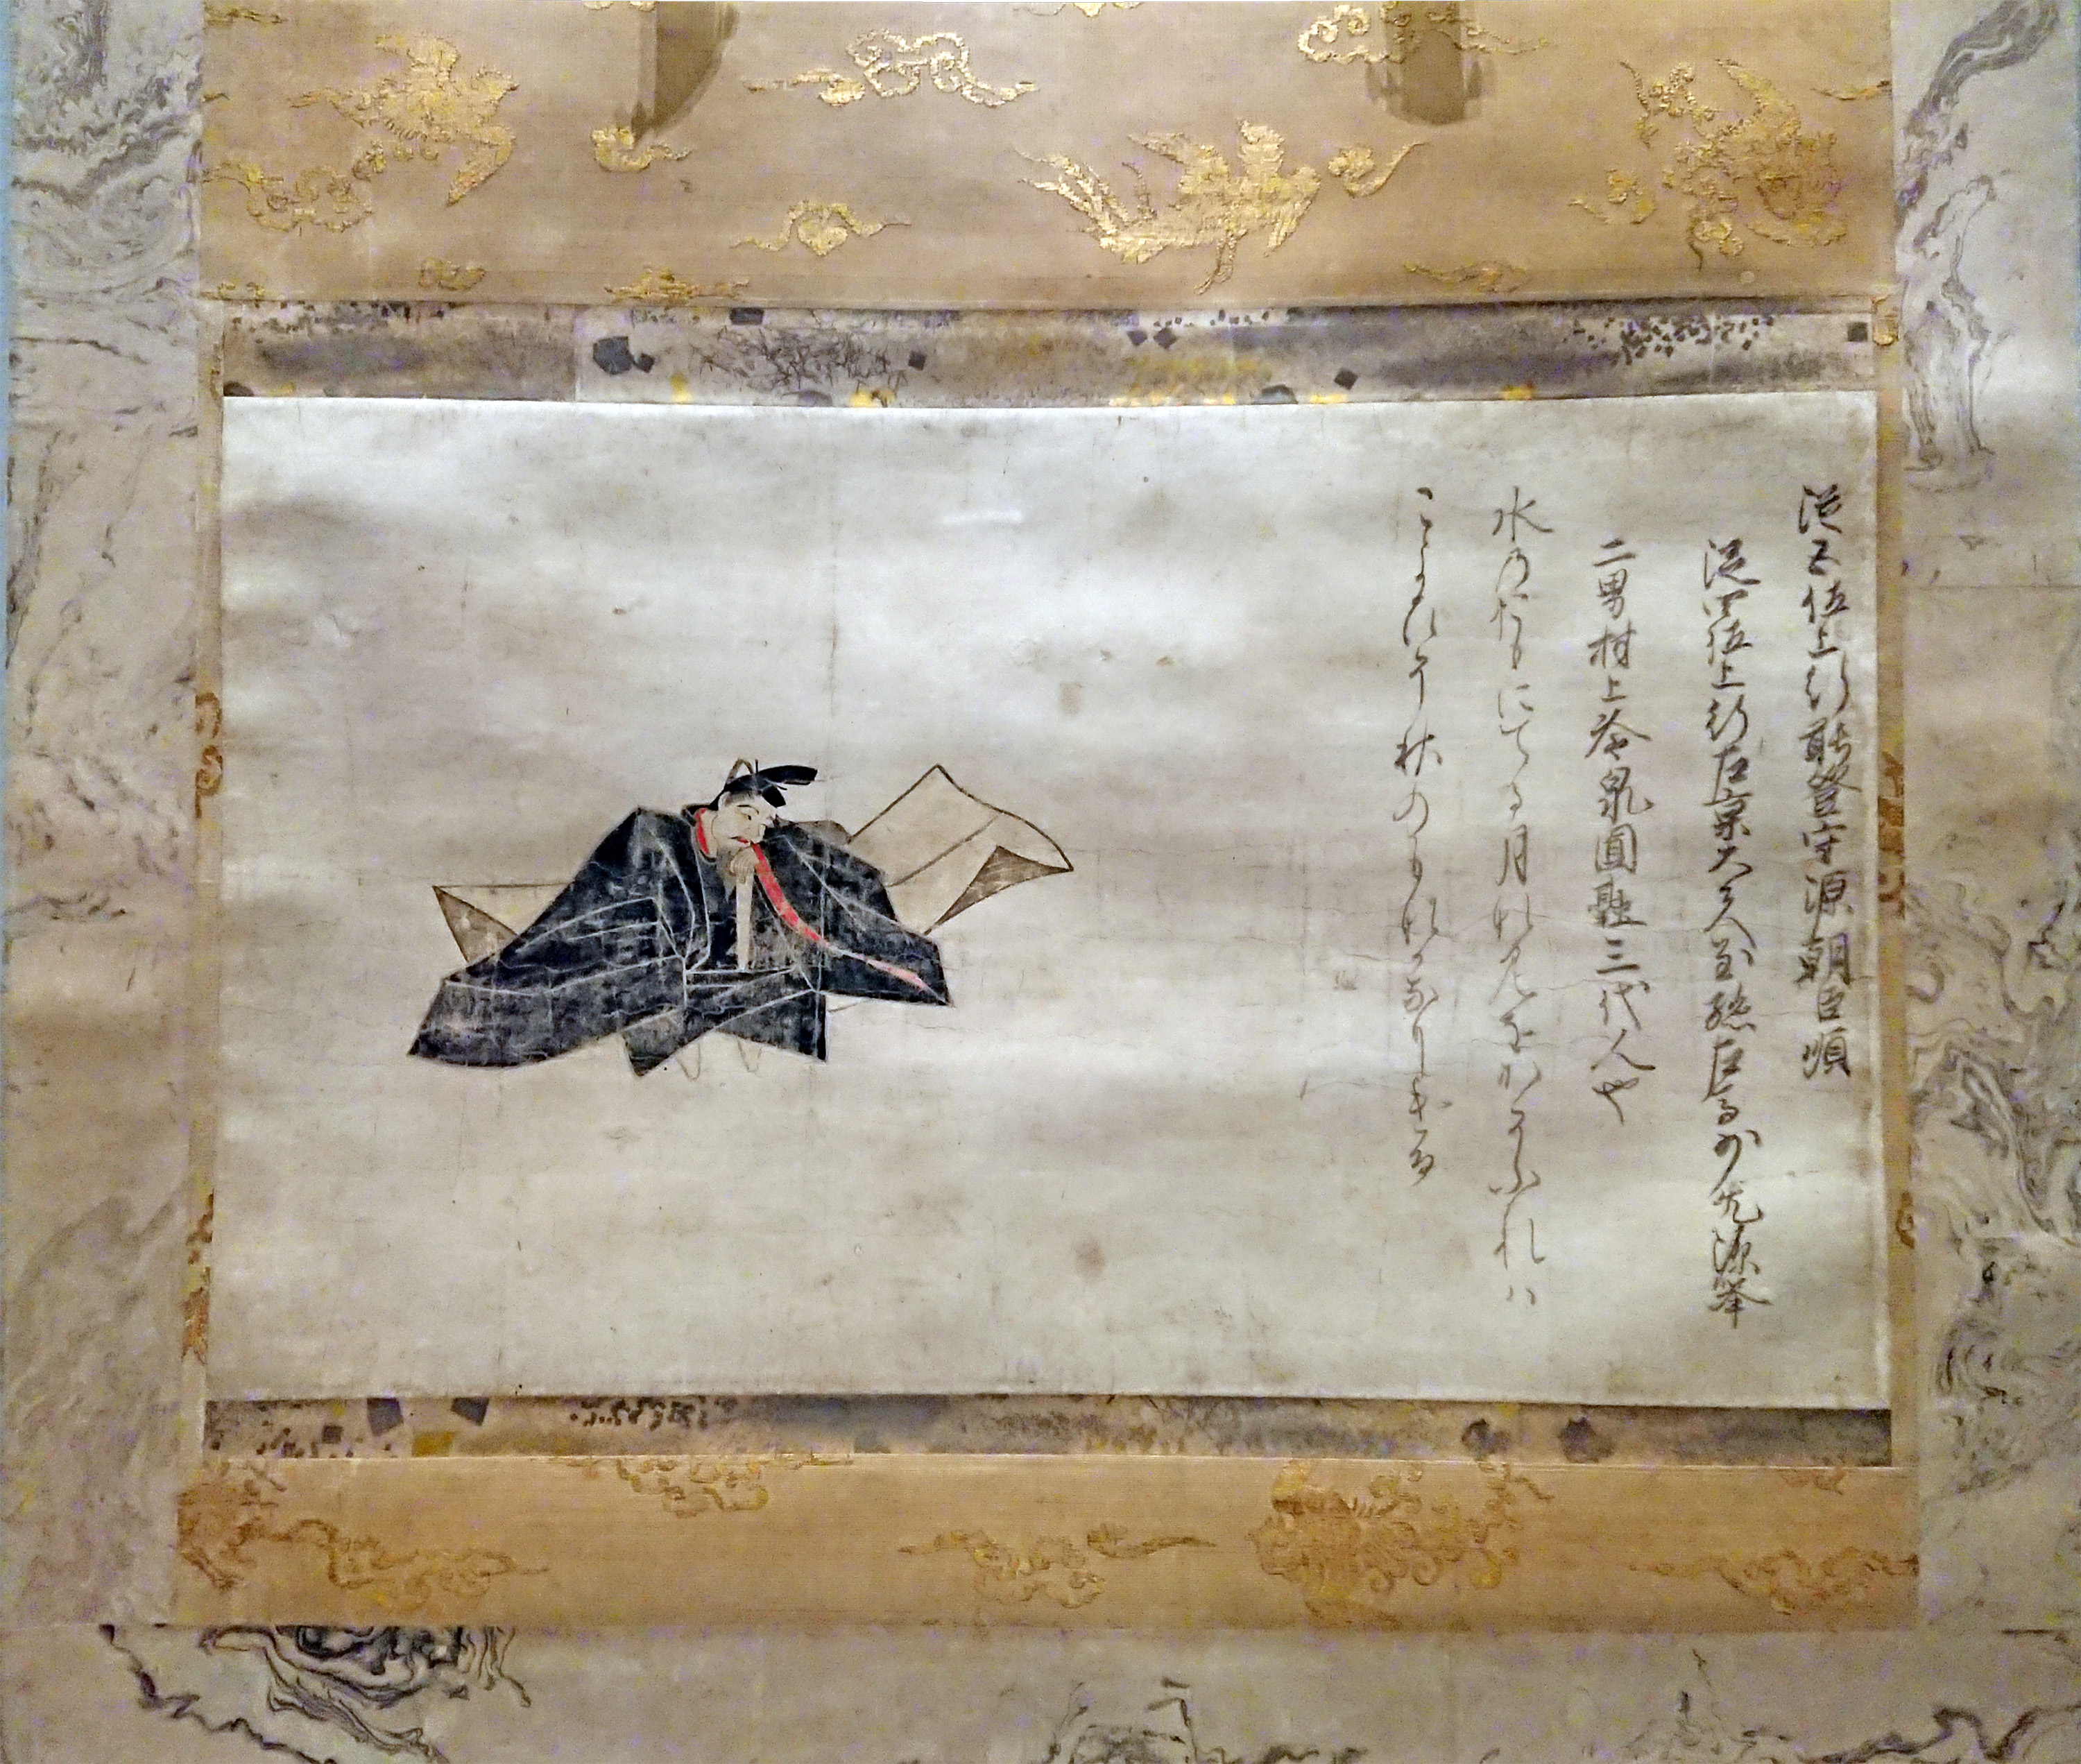 従五位上行能登守源朝臣順
従四位上行左京大夫至孫左馬允源挙
二男村上冷泉圓融三代人也
水のおもにてる月なみをかそふれハ
こよひそ秋のもなかなりける